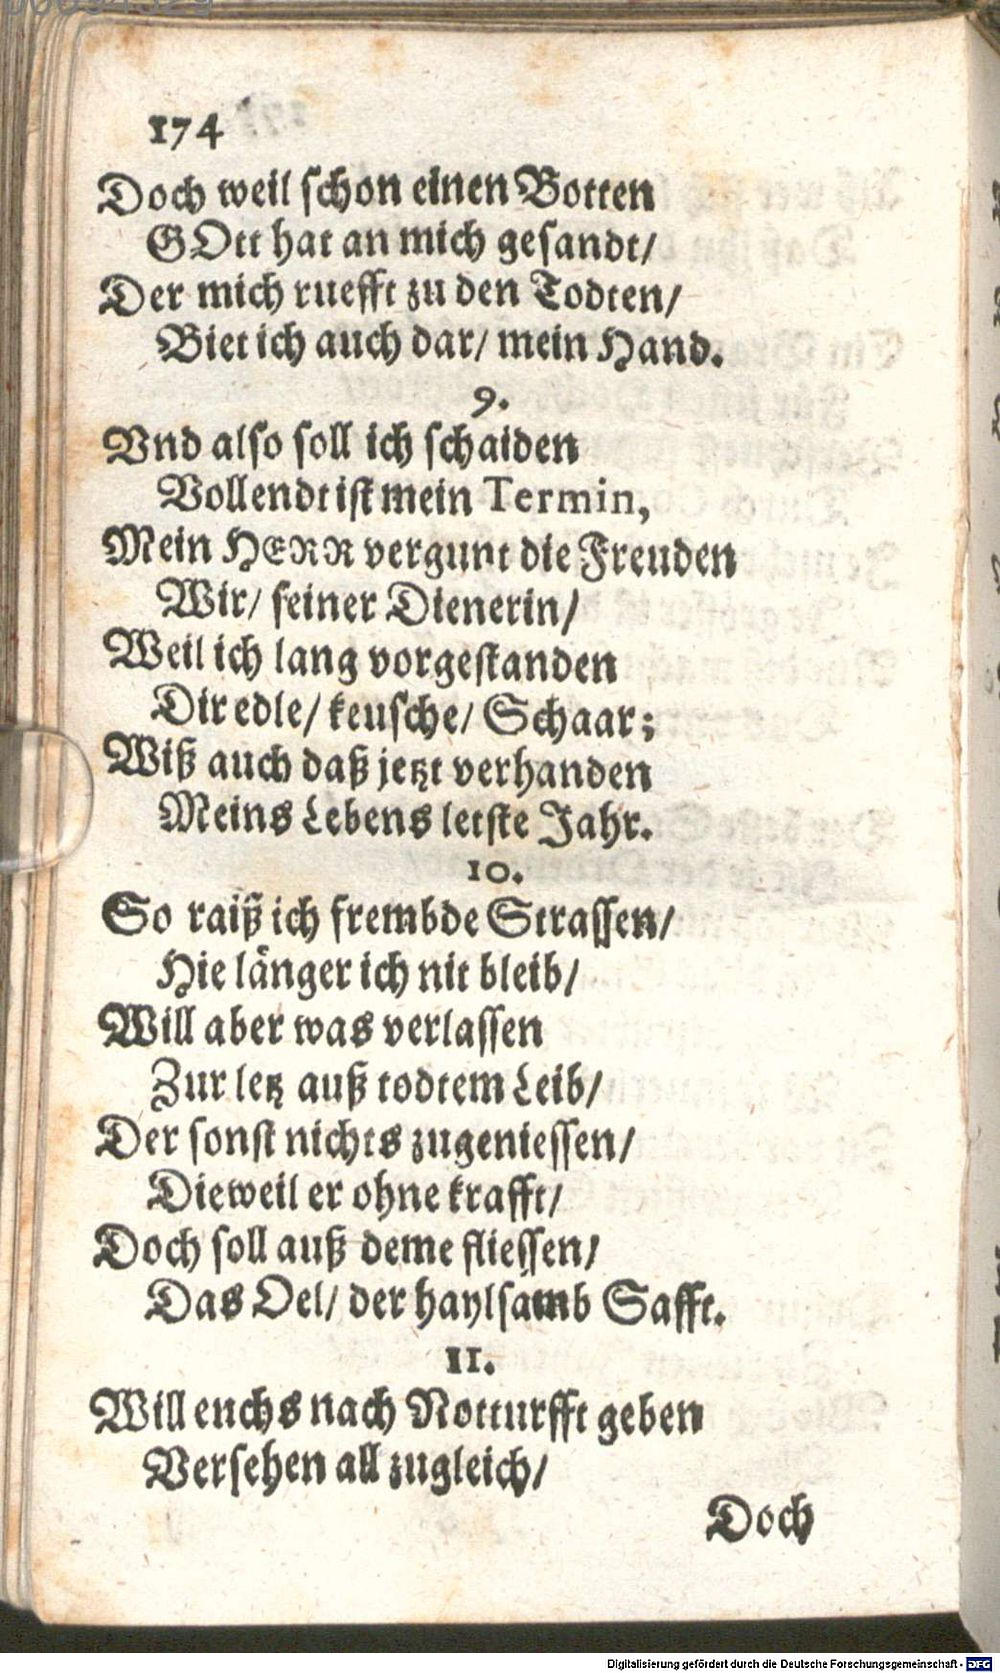 174
Doch weil schon einen Botten
GOtt hat an mich gesandt/
Der mich ruefft zu den Todten/
Biet ich auch dar/ mein Hand.
9.
Vnd also soll ich schaiden
Vollendt ist mein Termin,
Mein HERR vergunt die Freuden
Wir/ seiner Dienerin/
Weil ich lang vorgestanden
Dir edle/ keusche/ Schaar;
Wiß auch daß jetzt verhanden
Meins Lebens letste Jahr.
10.
So raiß ich frembde Strassen/
Hie länger ich nit bleib/
Will aber was verlassen
Zur letz auß todtem Leib/
Der sonst nichts zugeniessen/
Dieweil er ohne krafft/
Doch soll auß deme fliessen/
Das Oel/ der haylsamb Safft.
11.
Will enchs nach Notturfft geben
Versehen all zugleich/
Doch
Digitalisierung gefördert durch die Deutsche Forschungsgemeinschaft - DFG